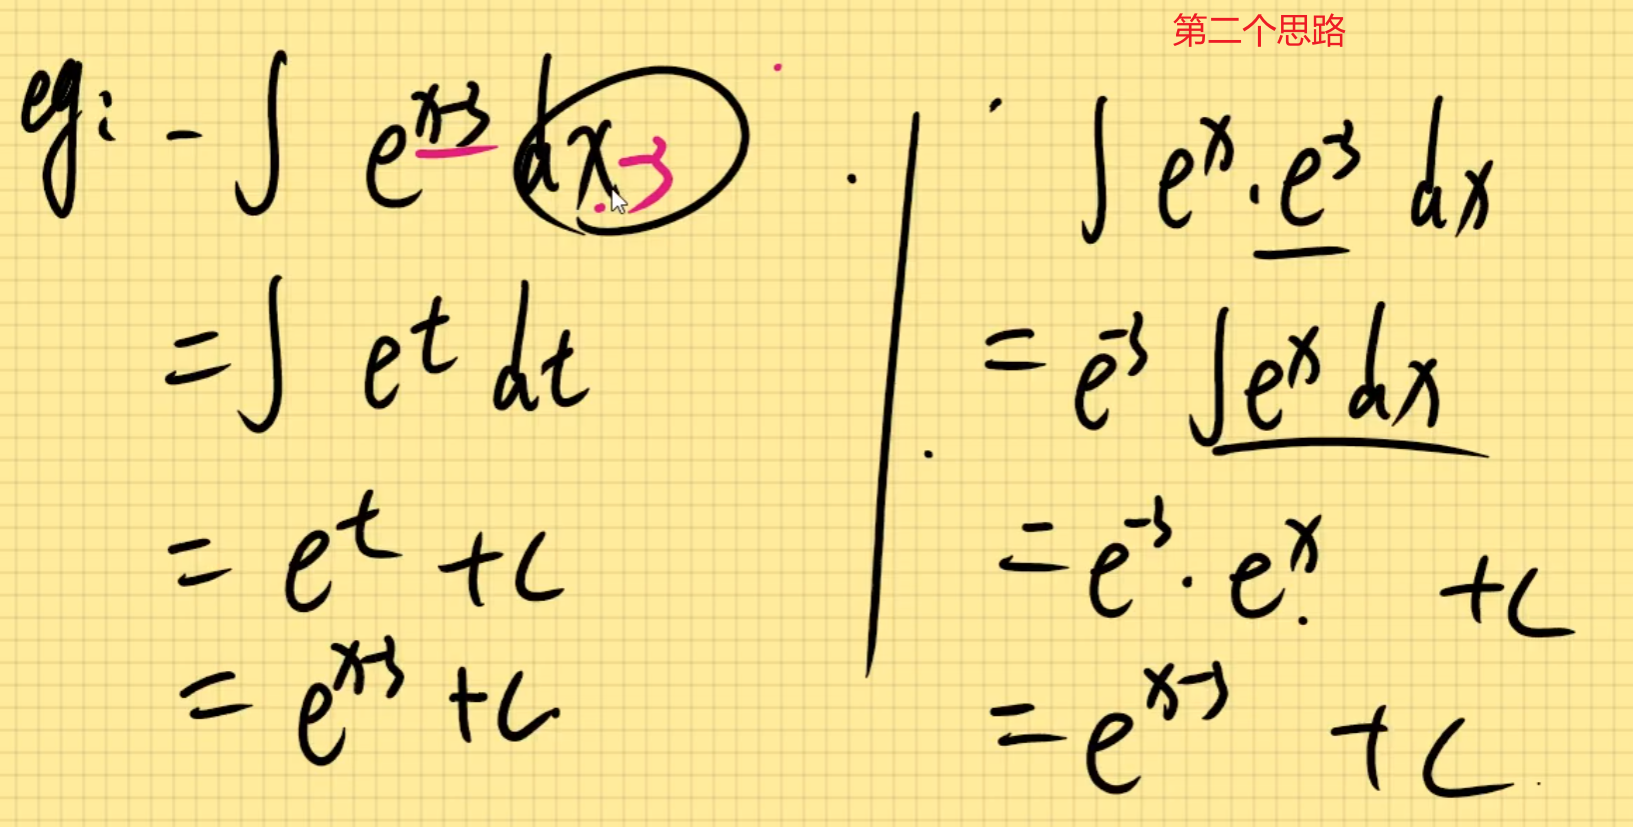 第二个思路
eg: - ∫ e^{x-3} dx-3
= ∫ e^t dt
= e^t + c
= e^{x-3} + c
∫ e^x · e^{-3} dx
= e^{-3} ∫ e^x dx
= e^{-3} · e^x + c
= e^{x-3} + c